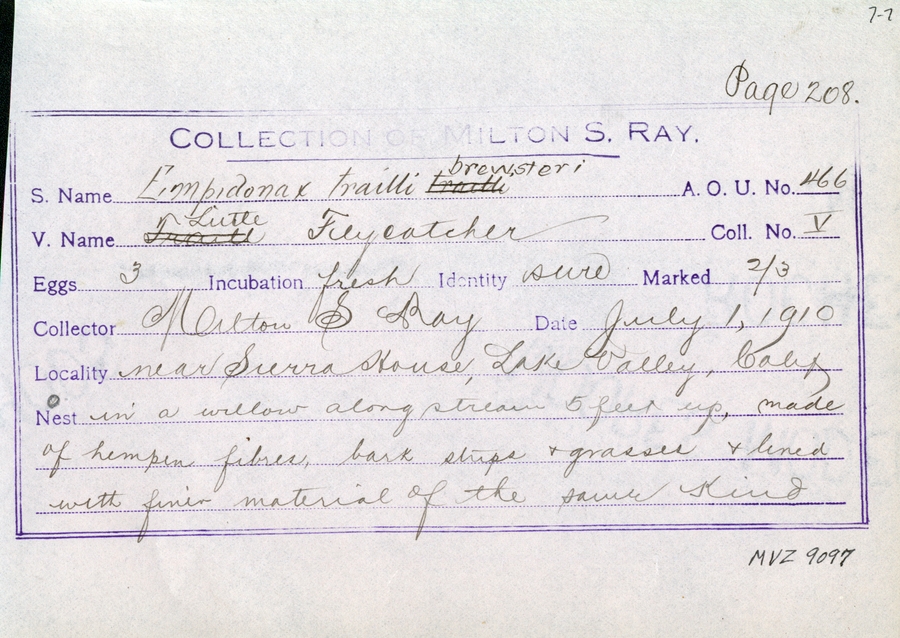 7-7
Page 208.
COLLECTION OF MILTON S. RAY.
brewsteri
S. Name Empidonax trailli trailli A. O. U. No. 466
Little
V. Name Traill Flycatcher Coll. No. V
Eggs 3 Incubation fresh Identity sure Marked 2/3
Collector Milton S Ray Date July 1, 1910
Locality near Sierra House, Lake Valley, Calif
Nest in a willow along stream 5 feet up, made
of hempen fibres, bark strips + grasses + lined
with finer material of the same kind
MVZ 9097